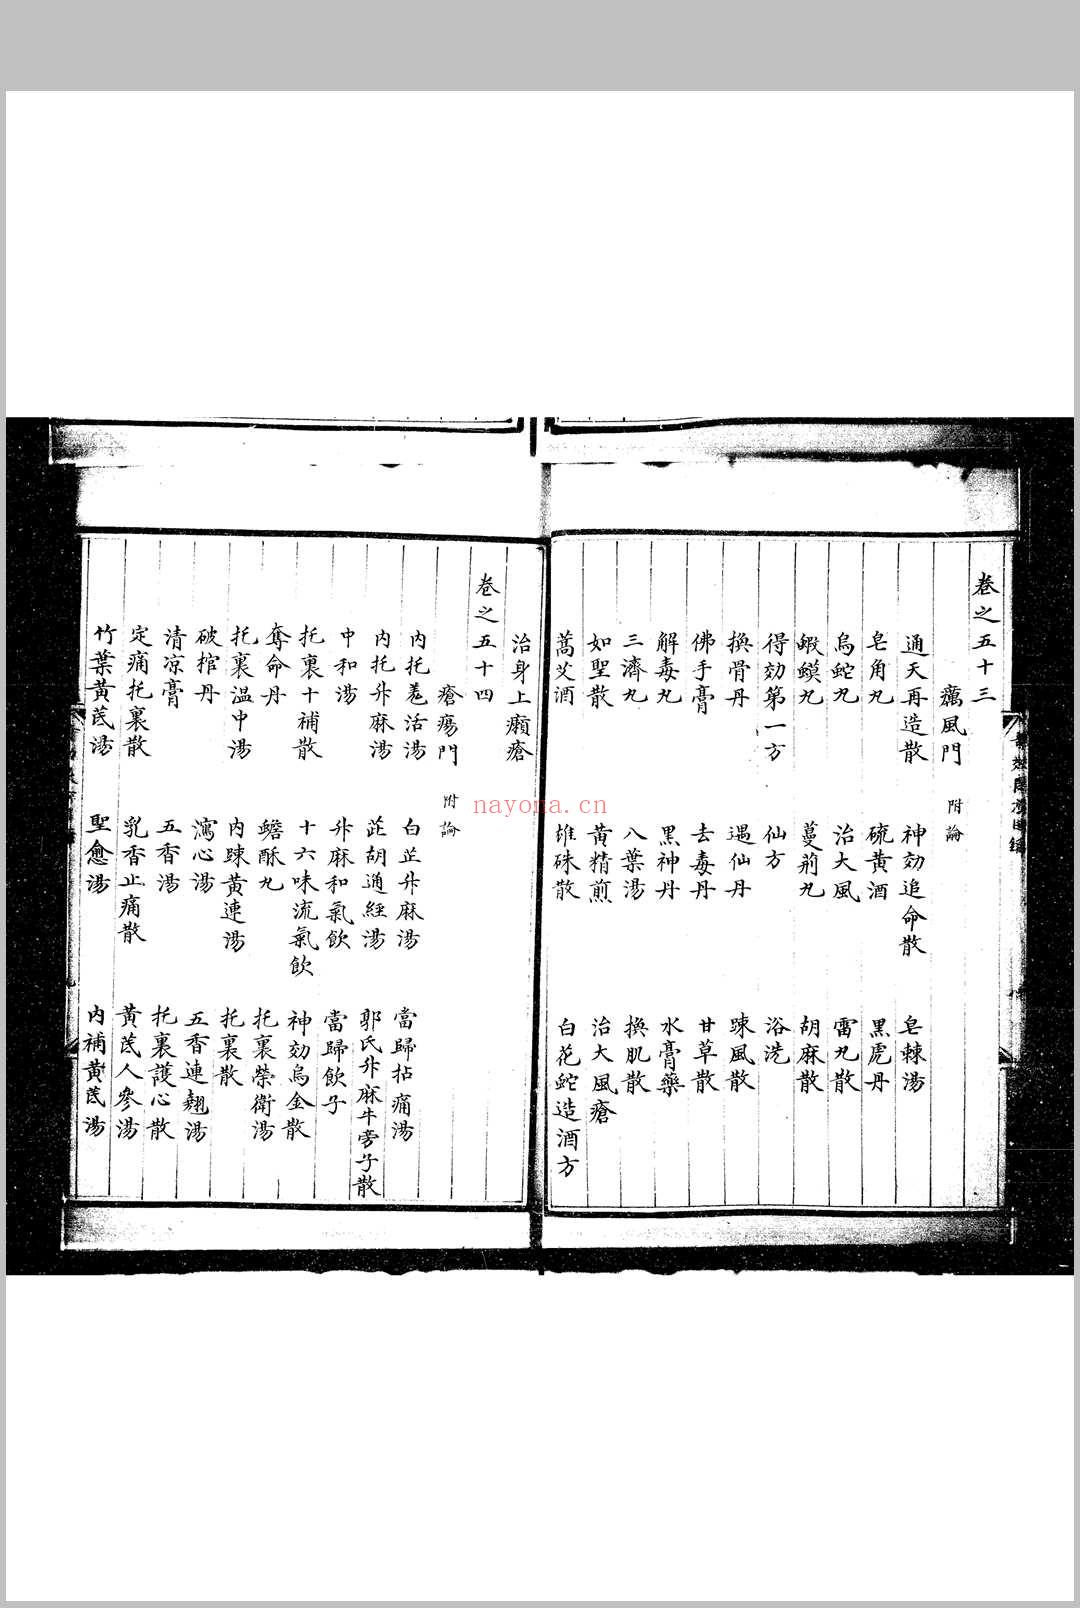 卷之五十三
癘風門 附論
通天再造散 神効追命散 皂棘湯
皂角丸 硫黃酒 黑虎丹
烏蛇丸 治大風 雷丸散
蝦蟆丸 蔓荊丸 胡麻散
得効第一方 仙方 浴洗
換骨丹 遇仙丹 踈風散
佛手膏 去毒丹 甘草散
解毒丸 黑神丹 水膏藥
三濟丸 八葉湯 換肌散
如聖散 黃精煎 治大風瘡
蒿艾酒 雄硃散 白花蛇造酒方
治身上癩瘡
卷之五十四
瘡瘍門 附論
內托羌活湯 白芷升麻湯 當歸拈痛湯
內托升麻湯 茈胡通經湯 郭氏升麻牛旁子散
中和湯 升麻和氣飲 當歸飲子
托裏十補散 十六味流氣飲 神効烏金散
奪命丹 蟾酥丸 托裏榮衛湯
托裏温中湯 內踈黃連湯 托裏散
破棺丹 瀉心湯 五香連翹湯
清凉膏 五香湯 托裏護心散
定痛托裏散 乳香止痛散 黃茋人參湯
竹葉黃茋湯 聖愈湯 內補黃茋湯
nayona.cn